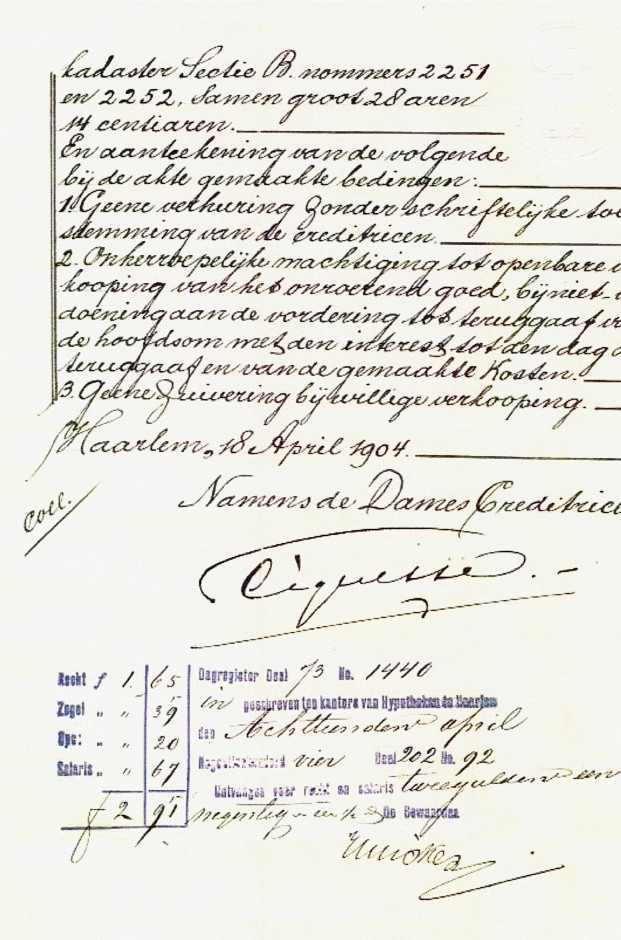 kadaster Sectie B. nommers 2251
en 2252, samen groot 28 aren
14 centiaren.
En aanteekening van de volgende
bij de akte gemaakte bedingen:
1. Geene verhuring zonder schriftelijke toe
stemming van de creditricen.
2. Onherroepelijke machtiging tot openbare v
kooping van het onroerend goed, bij niet-
doening aan de vordering tot teruggaaf v
de hoofdsom met den interest tot den dag d
teruggaaf en van de gemaakte kosten.
3. Geene zuivering bij willige verkooping.
Haarlem, 18 April 1904.
Namens de Dames Creditrice
coll.
Recht f 1. 65 Dagregister Deel 73 No. 1440
Zegel „ „ 39 in geschreven ten kantore van Hypotheken te Haarlem
„ „ 20 den Achttienden april
Salaris „ „ 67 vier Deel 202 No. 92
Ontvangen voor recht en salaris twee gulden een
f 2 91 negentig en een ½ De Bewaarder